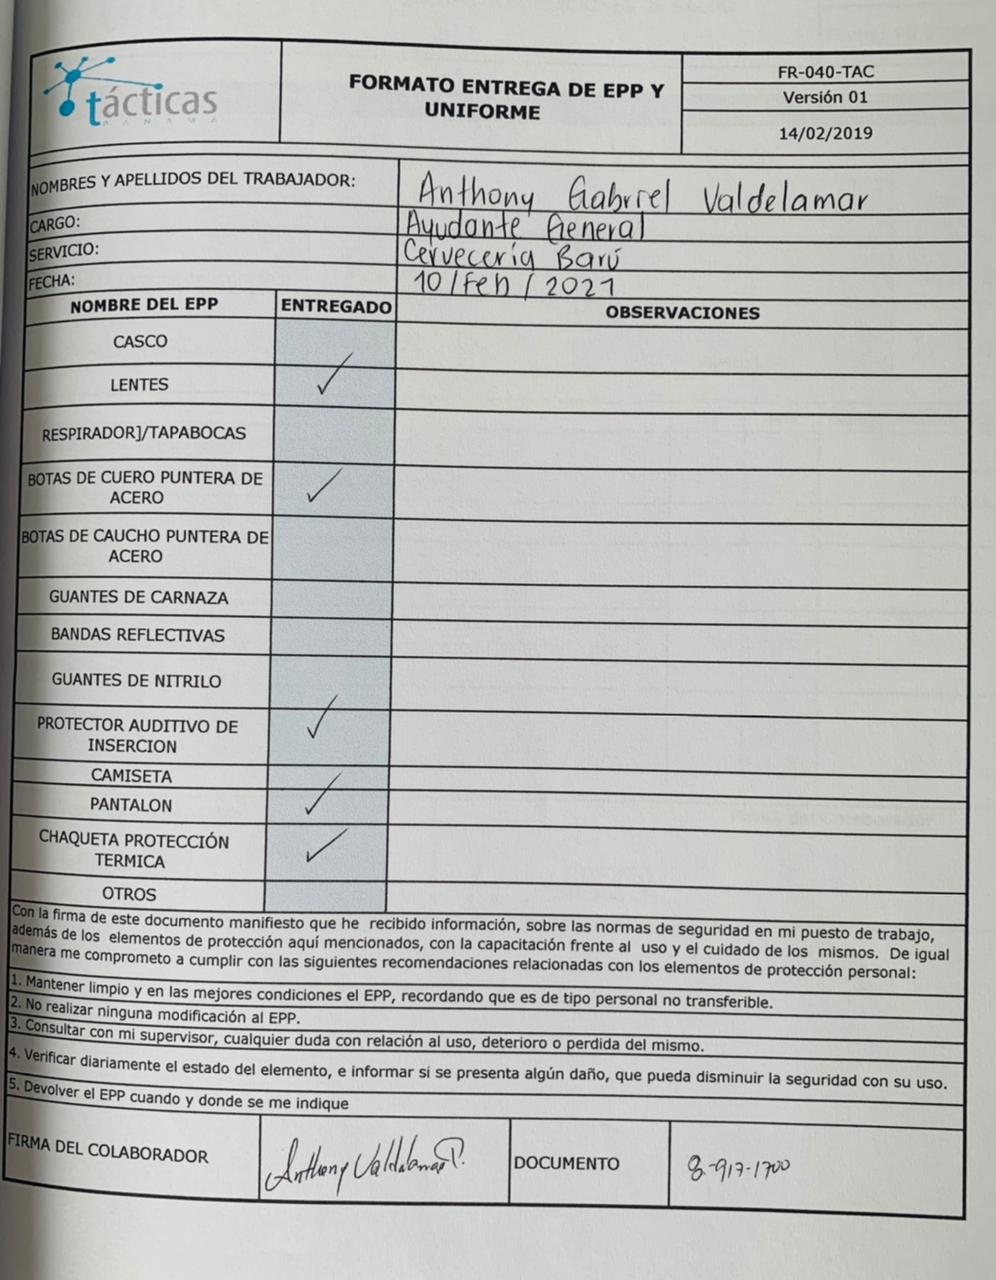 tácticas
PANAMÁ
FORMATO ENTREGA DE EPP Y
UNIFORME
FR-040-TAC
Versión 01
14/02/2019
NOMBRES Y APELLIDOS DEL TRABAJADOR: Anthony Gabriel Valdelamar
CARGO: Ayudante General
SERVICIO: Cervecería Barú
FECHA: 10/Feb/2021
NOMBRE DEL EPP ENTREGADO OBSERVACIONES
CASCO
LENTES ✓
RESPIRADOR]/TAPABOCAS
BOTAS DE CUERO PUNTERA DE
ACERO ✓
BOTAS DE CAUCHO PUNTERA DE
ACERO
GUANTES DE CARNAZA
BANDAS REFLECTIVAS
GUANTES DE NITRILO
PROTECTOR AUDITIVO DE
INSERCION ✓
CAMISETA
PANTALON ✓
CHAQUETA PROTECCIÓN
TERMICA ✓
OTROS
Con la firma de este documento manifiesto que he recibido información, sobre las normas de seguridad en mi puesto de trabajo,
además de los elementos de protección aquí mencionados, con la capacitación frente al uso y el cuidado de los mismos. De igual
manera me comprometo a cumplir con las siguientes recomendaciones relacionadas con los elementos de protección personal:
1. Mantener limpio y en las mejores condiciones el EPP, recordando que es de tipo personal no transferible.
2. No realizar ninguna modificación al EPP.
3. Consultar con mi supervisor, cualquier duda con relación al uso, deterioro o perdida del mismo.
4. Verificar diariamente el estado del elemento, e informar si se presenta algún daño, que pueda disminuir la seguridad con su uso.
5. Devolver el EPP cuando y donde se me indique
FIRMA DEL COLABORADOR Anthony Valdelamar P. DOCUMENTO 8-917-1700